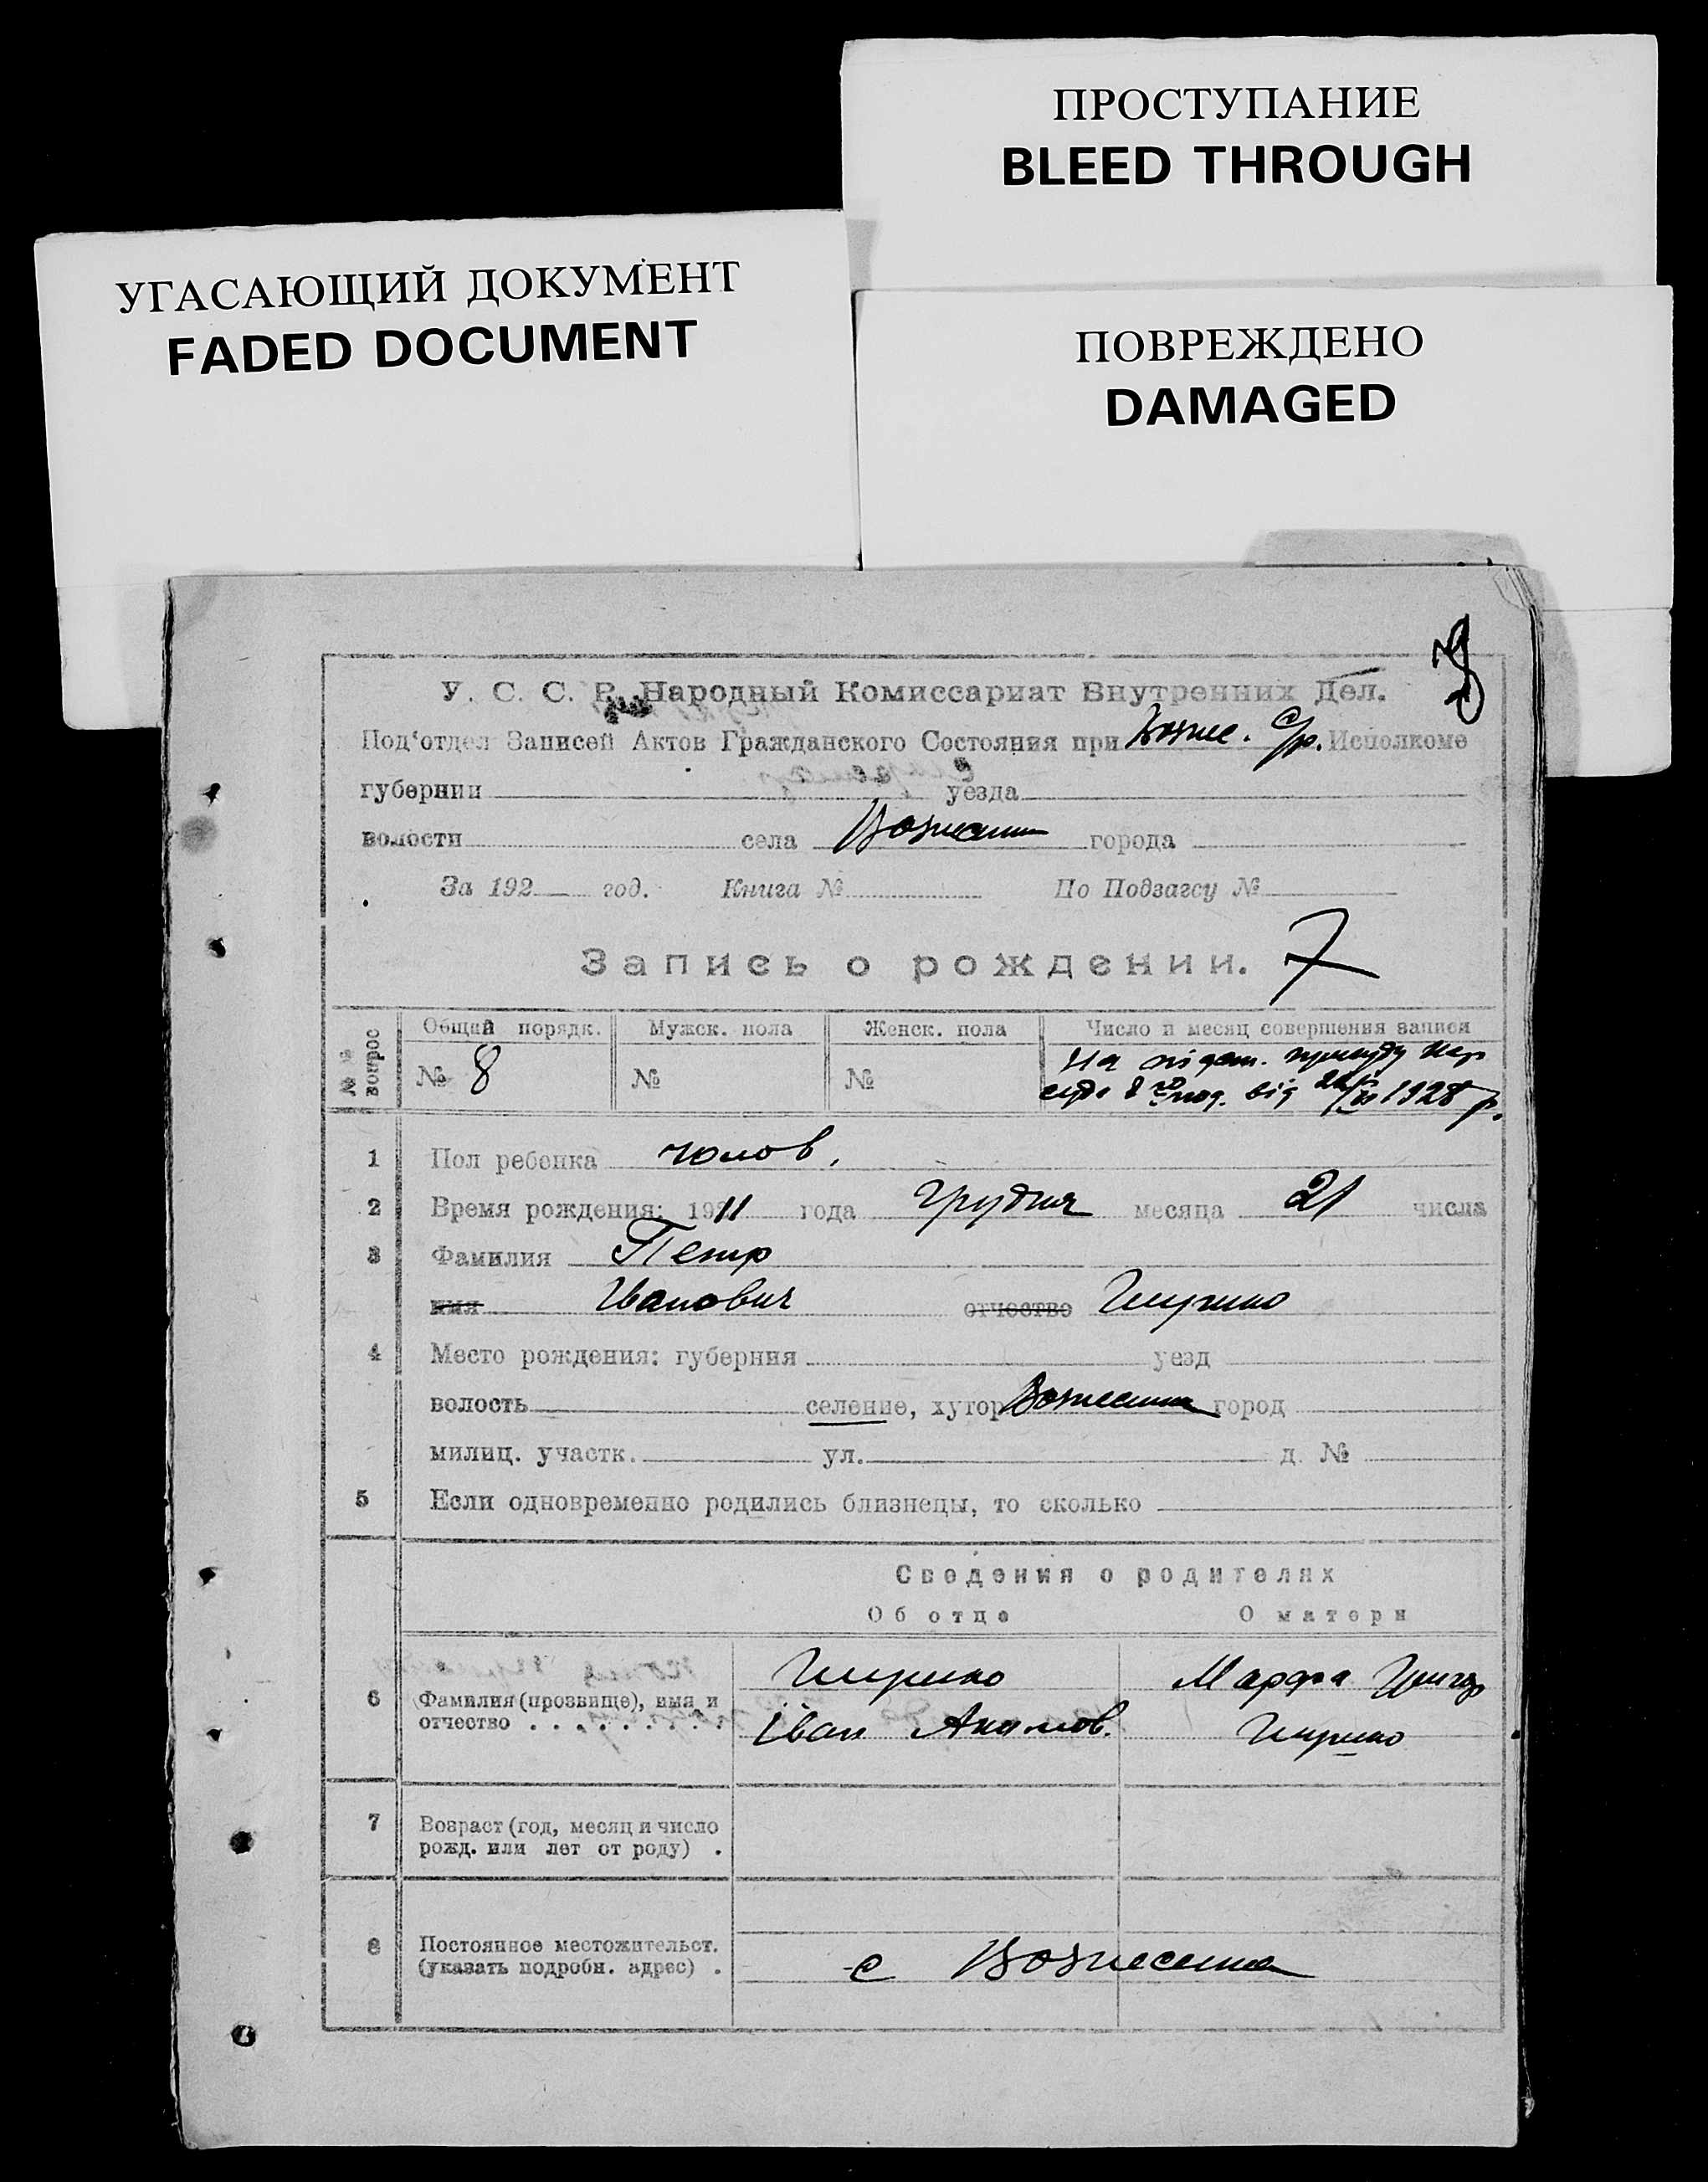 ПРОСТУПАНИЕ
BLEED THROUGH
УГАСАЮЩИЙ ДОКУМЕНТ
FADED DOCUMENT
ПОВРЕЖДЕНО
DAMAGED
У. С. С. Р. Народный Комиссариат Внутренних Дел.
Под'отдел Записей Актов Гражданского Состояния при Возне. с/р. Исполкоме
губернии уезда
волости села города
За 192 год. Книга № По Подзагсу №
Запись о рождении. 7
№№ вопрос
Общий порядк. Мужск. пола Женск. пола Число и месяц совершения записи
№ 8 № № На підст. присуду Нар
суда від 1928 р.
1 Пол ребенка чолов.
2 Время рождения: 1911 года Грудня месяца 21 числа
3 Фамилия Петр
имя Иванович отчество
4 Место рождения: губерния уезд
волость селение, хутор город
милиц. участк. ул. д. №
5 Если одновременно родились близнецы, то сколько
Сведения о родителях
Об отце О матери
6 Фамилия (прозвище), имя и
отчество . . . . . . . . .
Іван Марфа Григор
7 Возраст (год, месяц и число
рожд. или лет от роду) .
8 Постоянное местожительст.
(указать подробн. адрес) .
с Вознесенка